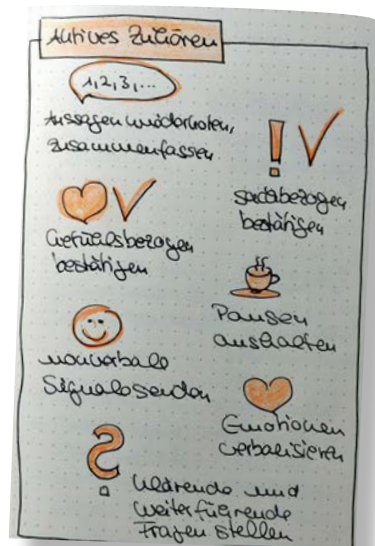 Aktives Zuhören
1,2,3,...
Aussagen wiederholen,
zusammenfassen
sachbezogen
bestätigen
Gefühlsbezogen
bestätigen
Pausen
aushalten
nonverbale
Signale senden
Emotionen
verbalisieren
klärende und
weiterführende
Fragen stellen